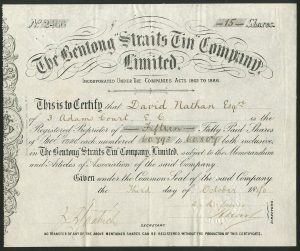 No. 2466 15 Shares.
The Bentong Straits Tin Company,
Limited.
Incorporated Under The Companies Acts 1862 to 1886.
This is to Certify that David Nathan Esqre
of 3 Adam Court, E.C. is the
Registered Proprietor of Fifteen Fully Paid Shares
of each numbered to both inclusive,
in The Bentong Straits Tin Company, Limited, subject to the Memorandum
and Articles of Association of the said Company.
Given under the Common Seal of the said Company
the Third day of October
Secretary.
No Transfer of any of the above mentioned Shares can be registered without the production of this Certificate.